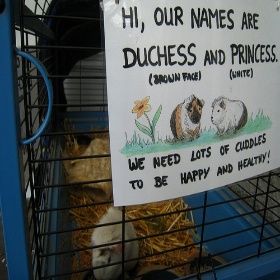 HI, OUR NAMES ARE
DUCHESS AND PRINCESS.
(BROWN FACE) (WHITE)
WE NEED LOTS OF CUDDLES
TO BE HAPPY AND HEALTHY!